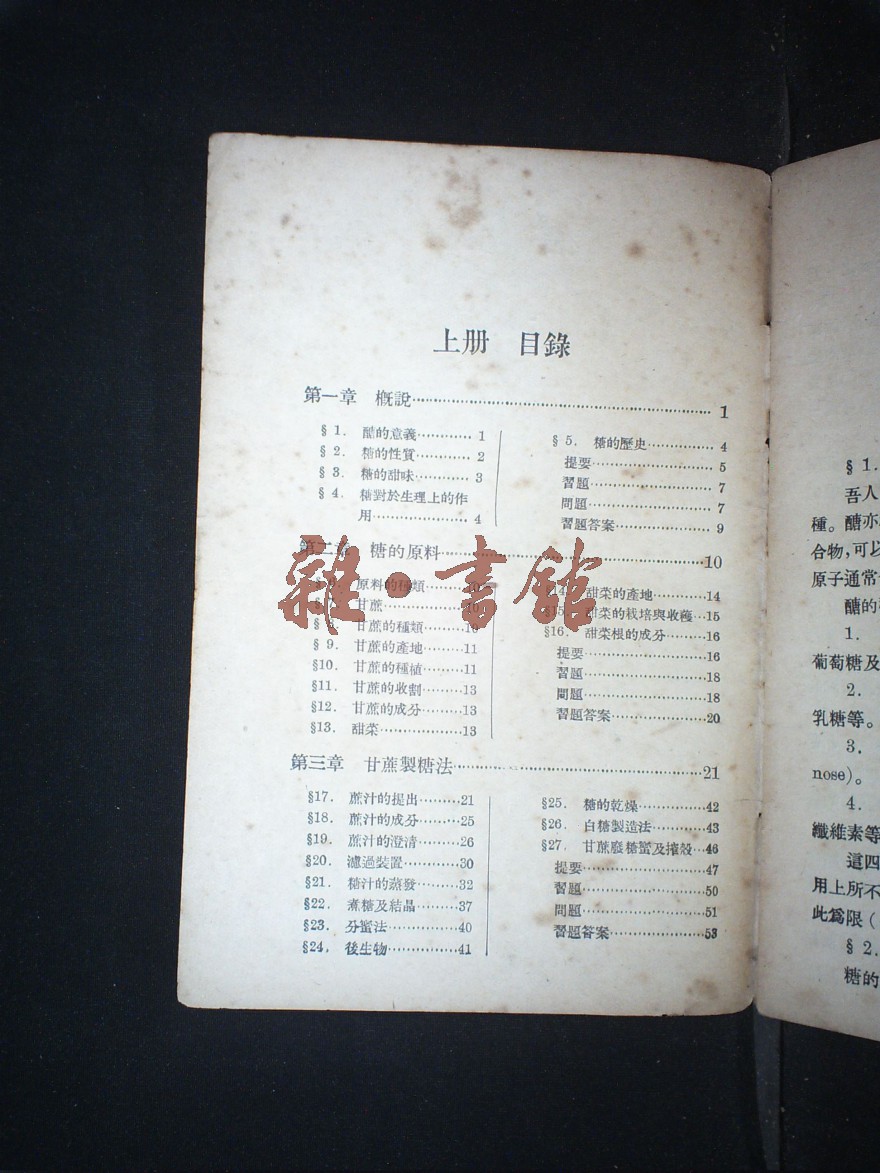 上册 目錄
第一章 概說 1
§ 1. 醣的意義 1
§ 2. 糖的性質 2
§ 3. 糖的甜味 3
§ 4. 糖對於生理上的作
用 4
§ 5. 糖的歷史 4
提要 5
習題 7
問題 7
習題答案 9
第二章 糖的原料 10
§ 6. 原料的種類 10
§ 7. 甘蔗 10
§ 8. 甘蔗的種類 10
§ 9. 甘蔗的產地 11
§10. 甘蔗的種植 11
§11. 甘蔗的收割 13
§12. 甘蔗的成分 13
§13. 甜菜 13
§14. 甜菜的產地 14
§15. 甜菜的栽培與收穫 15
§16. 甜菜根的成分 16
提要 16
習題 18
問題 18
習題答案 20
第三章 甘蔗製糖法 21
§17. 蔗汁的提出 21
§18. 蔗汁的成分 25
§19. 蔗汁的澄清 26
§20. 濾過裝置 30
§21. 糖汁的蒸發 32
§22. 煮糖及結晶 37
§23. 分蜜法 40
§24. 後生物 41
§25. 糖的乾燥 42
§26. 白糖製造法 43
§27. 甘蔗廢糖蜜及搾殼 46
提要 47
習題 50
問題 51
習題答案 53
雜·書館
§ 1.
吾人
種。醣亦
合物,可以
原子通常
醣的
1.
葡萄糖及
2.
乳糖等。
3.
nose)。
4.
纖維素等
這四
用上所不
此爲限(
§ 2.
糖的